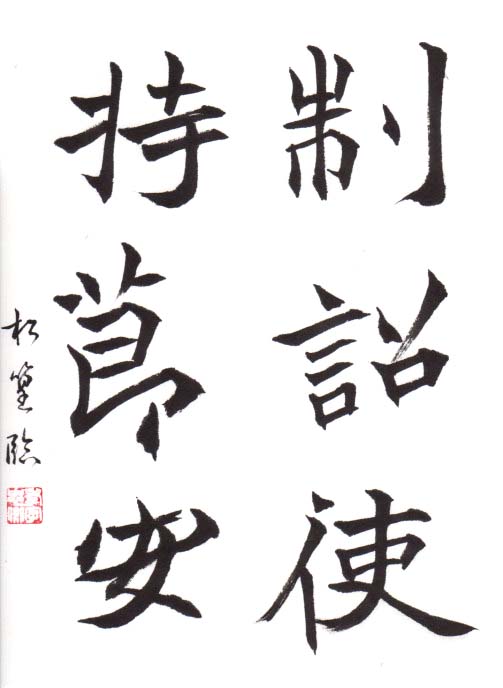 制詔使
持節安
松篁臨